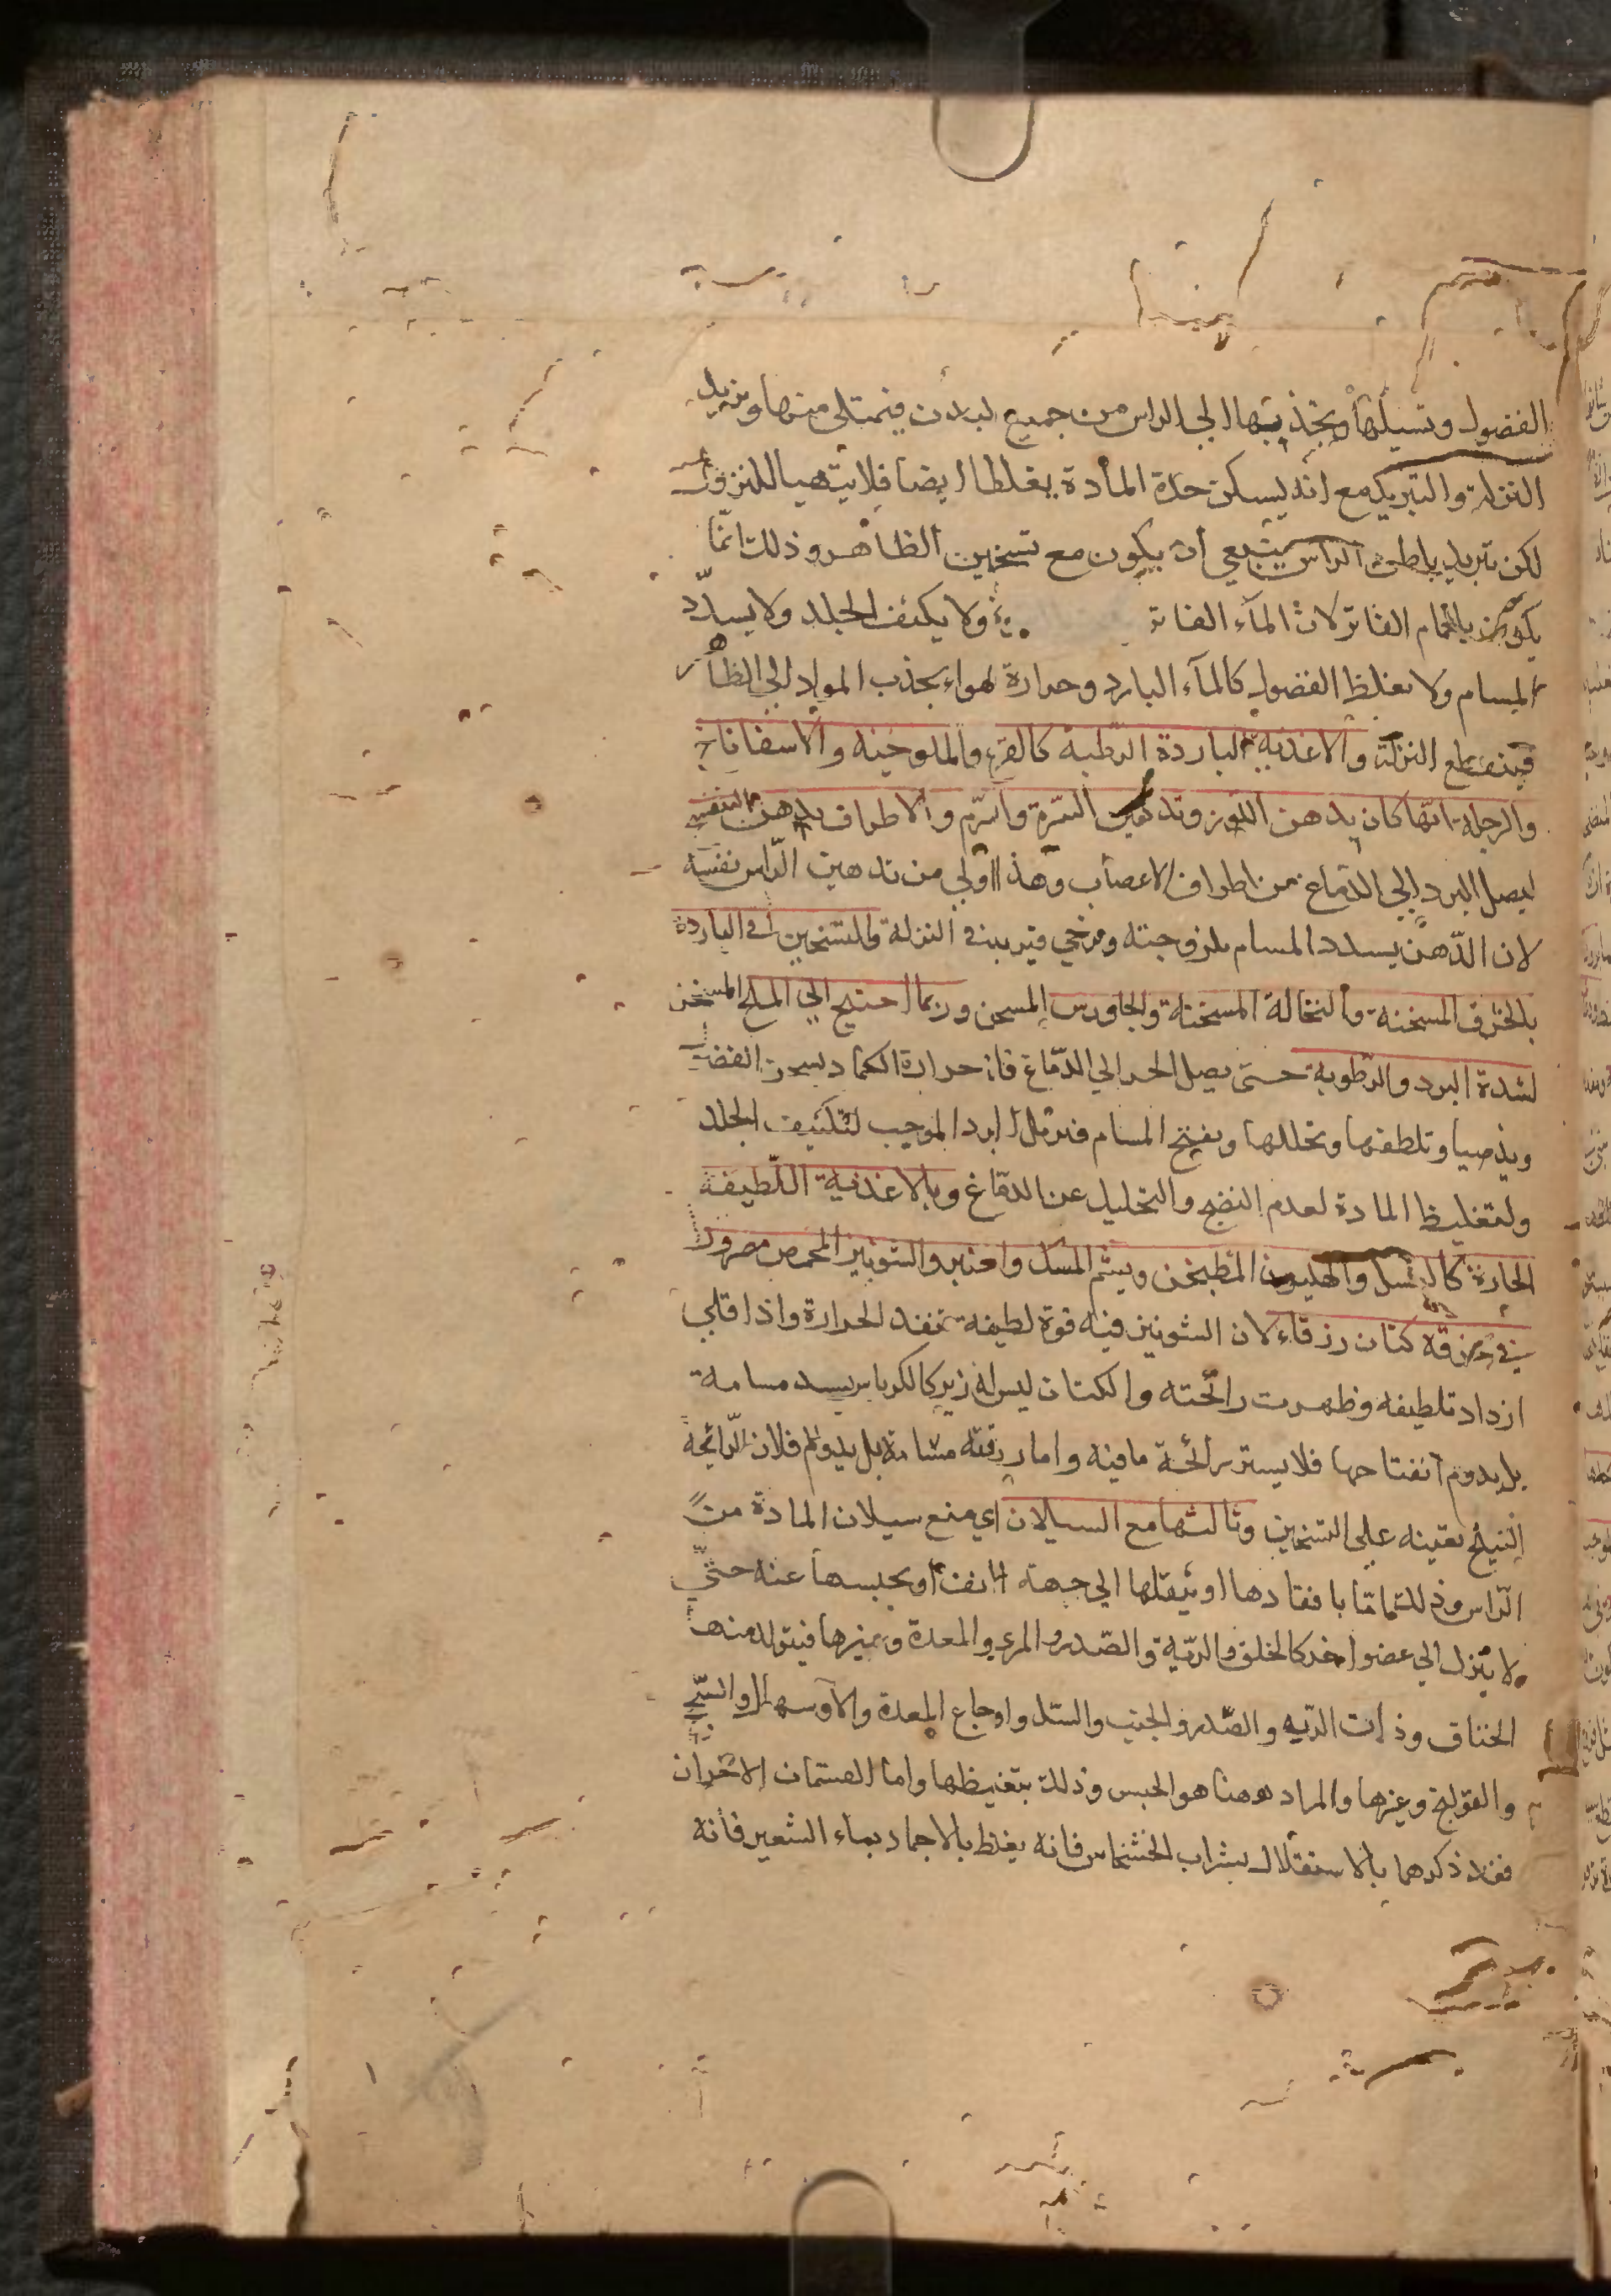 الفضول وتسيلها ويجذبها الى الراس من جميع البدن فيمتلى منها ويزيد
النزلة والتبريد مع انه يسكن حدة المادة يغلظها ايضا فلا يتهيا للنزول
لكن تبريد باطن الراس ينبغي ان يكون مع تسخين الظاهر وذلك انما
يكون بالحمام الفاتر لان الماء الفاتر ولا يكثف الجلد ولا يسدد
المسام ولا يغلظ الفضول كالماء البارد وحرارة لهواء يجذب المواد الى الظاهر
فينقطع النزلة والاغذية الباردة الرطبة كالقرع والملوخيه والاسفاناخ
والرجلة ايها كان بدهن اللوز وتدهين السرة والسرم والاطراف بدهن البنفسج
ليصل البرد الى الدماغ من اطراف الاعصاب وهذا اولى من تدهين الراس نفسه
لان الدهن يسدد المسام بلزوجته ومرخي فيزيد في النزلة والتسخين في الباردة
بالخرق المسخنه والنخالة المسخنة والجاورس المسخن وربما احتيج الى الملح المسخن
لشدة البرد والرطوبة حتى يصل الحر الى الدماغ فان حرارة الكماد يسخن الفضول
ويذيبها وتلطفها وتحللها ويفتح المسام فيزيل البرد الموجب لتكثيف الجلد
ولتغليظ المادة لعدم النضج والتحليل عن الدماغ وبالاغذية اللطيفة
الحارة كالعسل والهليون المطبخن ويشم المسك والعنبر والشونيز المحمص مصرورا
في خرقة كتان زرقاء لان الشونيز فيه قوة لطيفة تنفذ الحرارة واذا قلي
ازداد تلطيفه وظهرت رائحته والكتان ليس له زبر كالكرباس يسد مسامه
بل يدوم انفتاحها فلا يستر رائحة ما فيه واما زرقته فلان الرائحة
النيلج تعينه على التسخين وثالثها مع السيلان اي منع سيلان المادة من
الراس وذلك اما بافقادها او بنقلها الى جهة الانف او بحبسها عنه حتى
لا ينزل الى عضو اخر كالحلق والرية والصدر والمري والمعدة وغيرها فيتولد منها
الخناق وذات الريه والصدر والجنب والسل واوجاع المعدة والاسهال والسحج
والقولنج وغيرها والمراد ههنا هو الحبس وذلك بتغليظها واما القسمان الاخران
فقد ذكرهما بالاستقلال بشراب الخشخاش فانه يغلظ بالاجماد بماء الشعير فانه